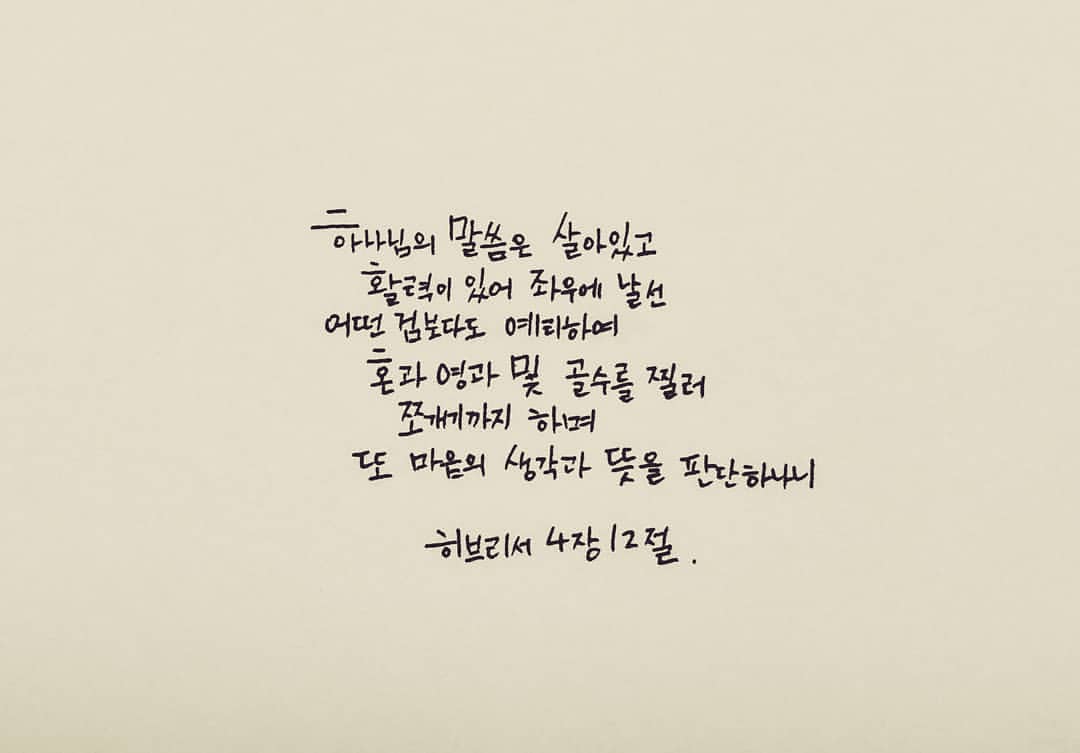 하나님의 말씀은 살아있고
활력이 있어 좌우에 날선
어떤 검보다도 예리하여
혼과 영과 및 골수를 찔러
쪼개기까지 하며
또 마음의 생각과 뜻을 판단하나니
히브리서 4장 12절.